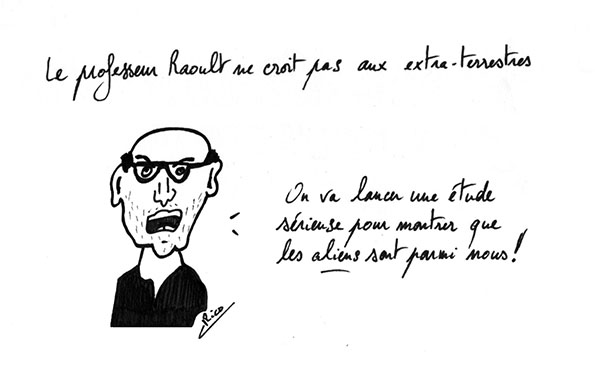 Le professeur Raoult ne croit pas aux extra-terrestres
On va lancer une étude
sérieuse pour montrer que
les aliens sont parmi nous!
Rico